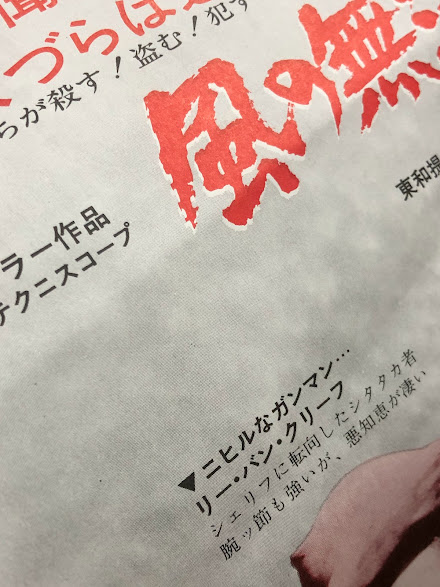 聞
づらは
ちが殺す！盗む！犯す
風の無
東和
ラー作品
テクニスコープ
▼ニヒルなガンマン…
リー・バン・クリーフ
シェリフに転向したシタタカ者
腕ッ節も強いが、悪知恵が凄い